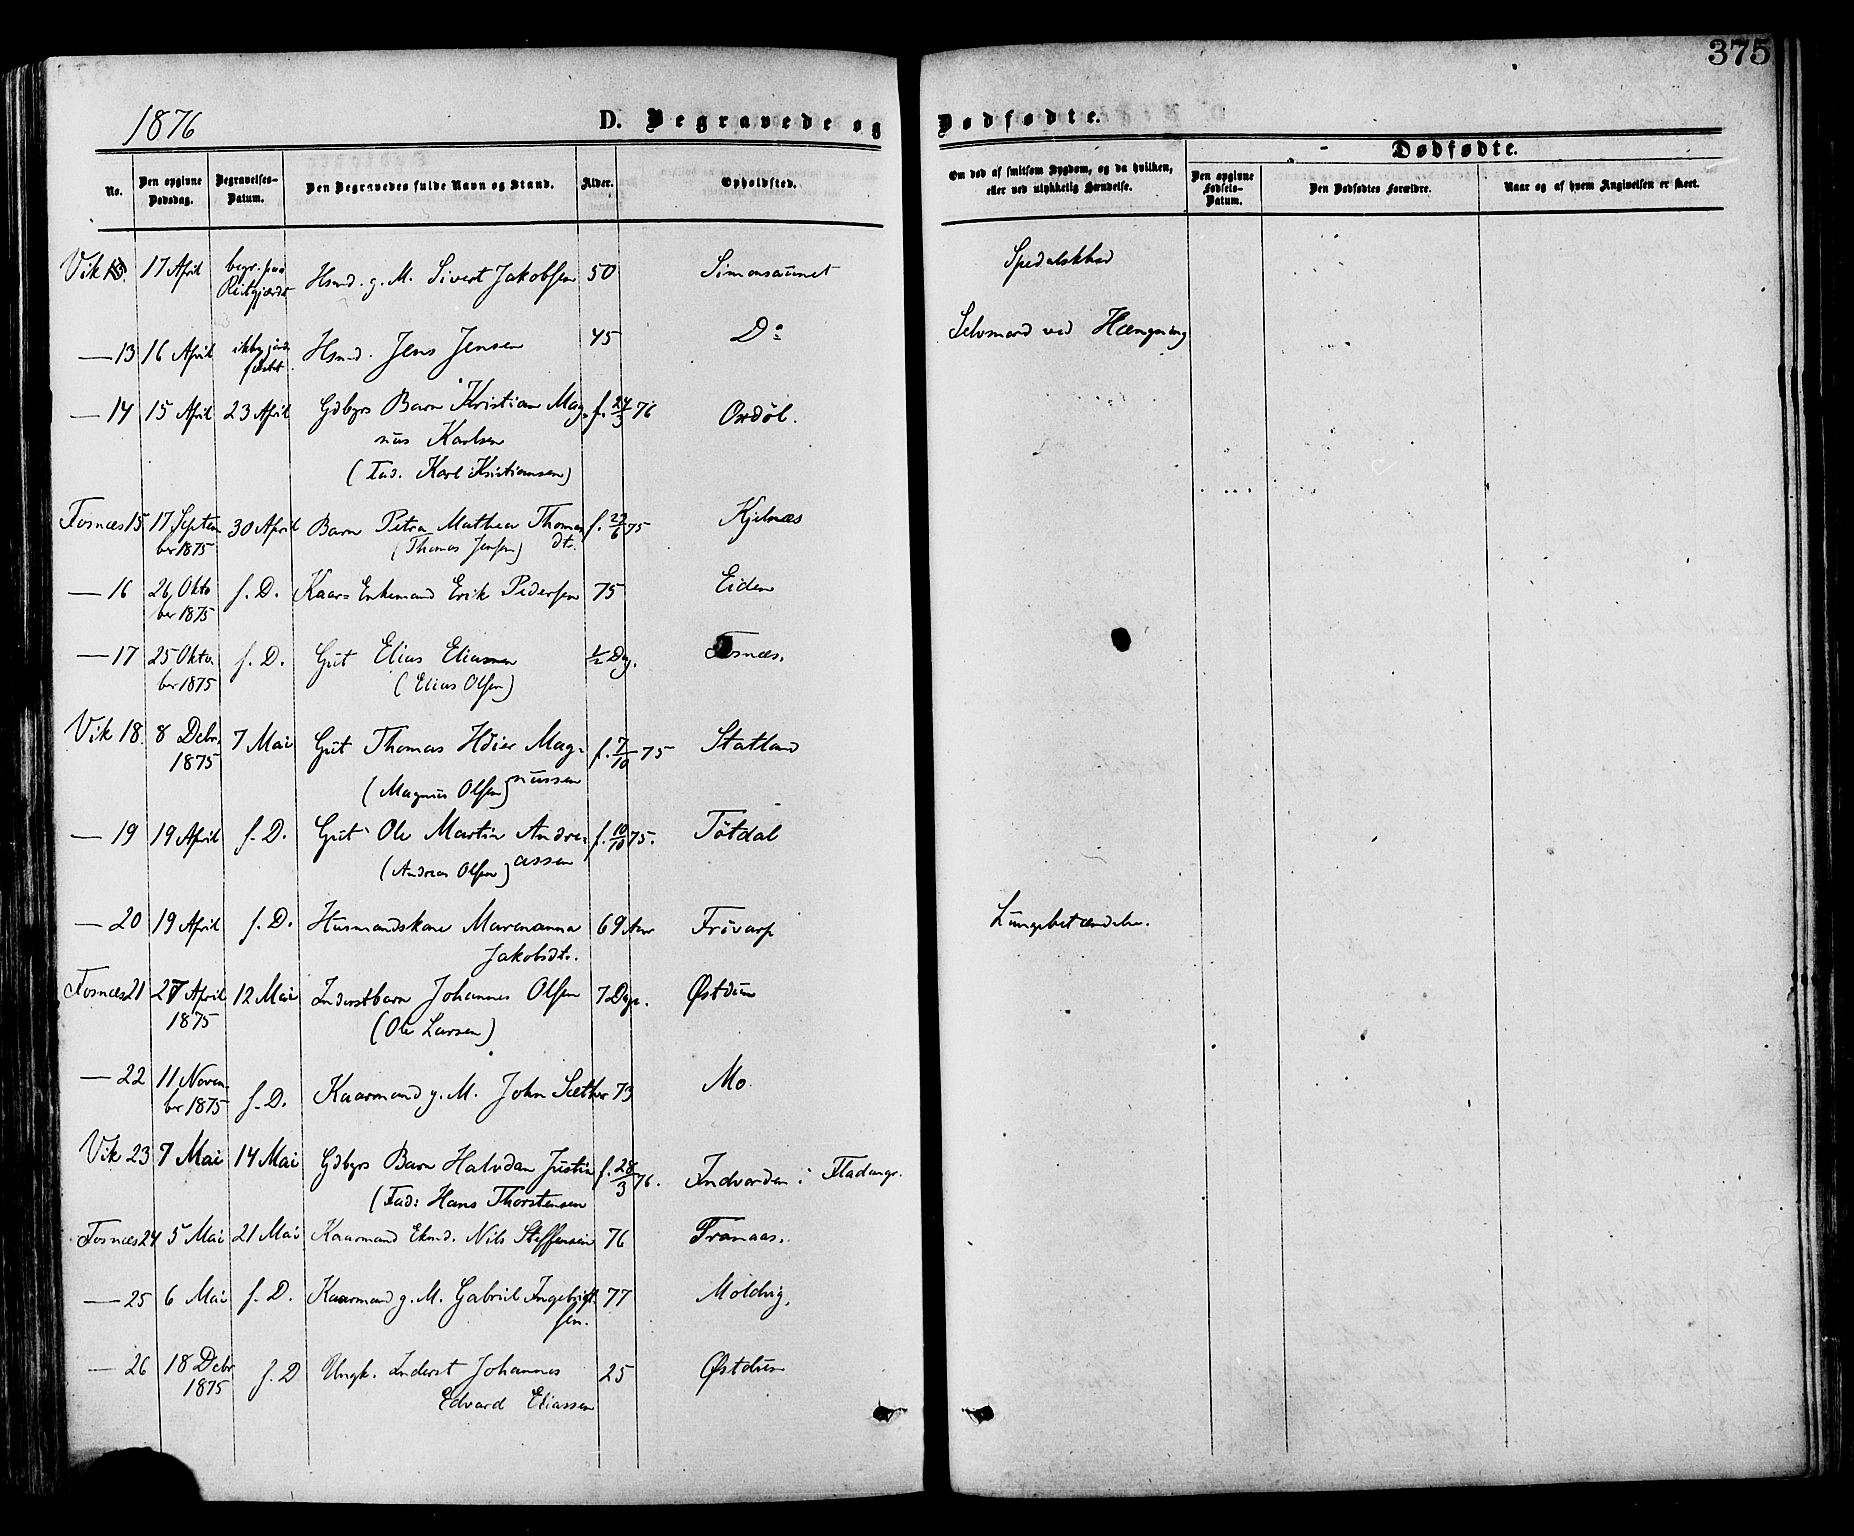 375
1876
D. Begravede og Dødfødte.
No. Den opgivne Dødsdag. Begravelses-Datum. Den Begravedes fulde Navn og Stand. Alder. Opholdssted. Om død af smitsom Sygdom, og da hvilken, eller ved ulykkelig Hændelse. Dødfødte.
Den opgivne Fødsels-Datum. Den Dødfødtes Forældre. Naar og af hvem Angivelsen er skeet.
Vik 17 April begr. paa Reitgjærdet Hsmd. g. M. Sivert Jakobsen 50 Simonsaunet Spedalskhed
— 13 16 April Hsmd. Jens Jensen 45 Do Selvmord ved Hængning
— 14 15 April 23 April Gdbrs Barn Kristian Mag- f. 24/3 76 Oxdöl.
nus Karlsen
(Fad. Karl Kristiansen)
Fosnæs 15 17 Septem 30 April Barn Petra Mathea Thomas f. 27/6 75 Kjelnæs
ber 1875 (Thomas Jensen) dt.
— 16 26 Okto f. D. Kaar= Enkemand Erik Pedersen 75 Eiden
ber 1875
— 17 25 Okto. f. D. Gut Elias Eliassen 1/2 Dag. Fosnæs.
ber 1875 (Elias Olsen)
Vik 18. 8 Debr. 7 Mai Gut Thomas Hdier Mag- f. 7/10 75 Statland
1875 (Magnus Olsen) nussen
— 19 19 April f. D. Gut Ole Martin Andre- f. 10/10 75. Tötdal
(Andreas Olsen) assen
— 20 19 April f. D. Husmandskone Marenanna 69 Aar Frövarp Lungebetændelse.
Jakobsdt.
Fosnæs 21 27 April 12 Mai Inderstbarn Johannes Olsen 7 Dage. Østduun
1875 (Ole Larsen)
— 22 11 Novem- f. D. Kaarmand g. M. John Sæther 73 Mo
ber 1875
Vik 23 7 Mai 14 Mai Gdbrs Barn Halvdan Justin f. 28/3 76. Indvorden i Fladange.
(Fad: Hans Thorstensen
Fosnæs 24 5 Mai 21 Mai Kaarmand Ekmd. Nils Steffensen 76 Tranaas.
— 25 6 Mai f. D. Kaarmand g. M. Gabriel Ingebrigt- 77 Moldvig,
sen.
— 26 18 Debr f. D Ungk. Inderst Johannes 25 Østduun
1875 Edvard Eliassen